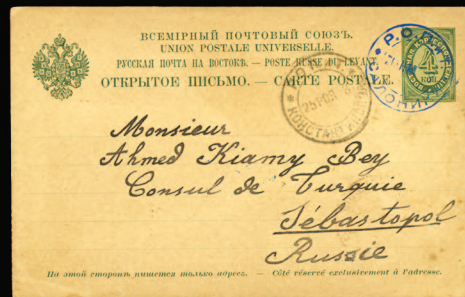 ВСЕМІРНЫЙ ПОЧТОВЫЙ СОЮЗЪ.
UNION POSTALE UNIVERSELLE.
РУССКАЯ ПОЧТА НА ВОСТОКѢ. — POSTE RUSSE DU LEVANT.
ОТКРЫТОЕ ПИСЬМО. — CARTE POSTALE.
4
КОП
Monsieur
Ahmed Kiamy Bey
Consul de Turquie
Sébastopol
Russie
На этой сторонѣ пишется только адресъ. — Côté réservé exclusivement à l'adresse.